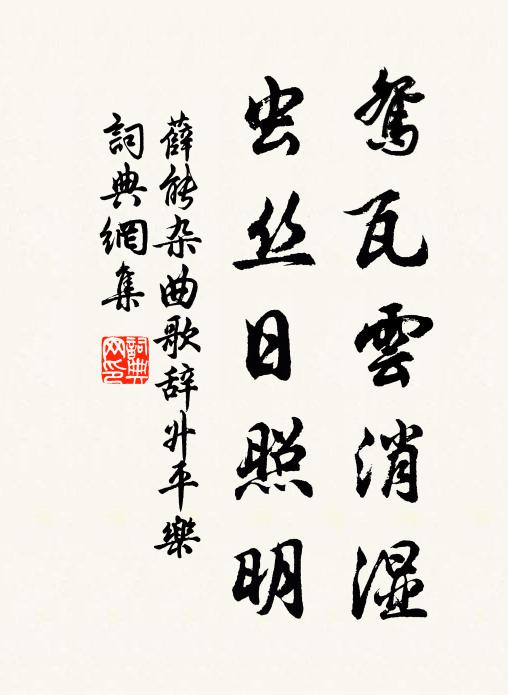 鸳瓦雲消湿
虫丝日照明
薛能杂曲歌辞升平樂
詞典網集
詞典网印